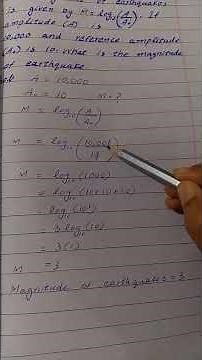 of earthquakes
is given by M = log₁₀(A/A₀). If
amplitude (A) is
10,000 and reference amplitude
(A₀) is 10. What is the magnitude
of earthquake.
A = 10,000
A₀ = 10 M = ?
M = log₁₀(A/A₀)
M = log₁₀(10,000/10)
M = log₁₀(1000)
= log₁₀(10×10×10)
= log₁₀(10³)
= 3 log₁₀(10)
= 3(1)
M = 3
Magnitude of earthquake = 3